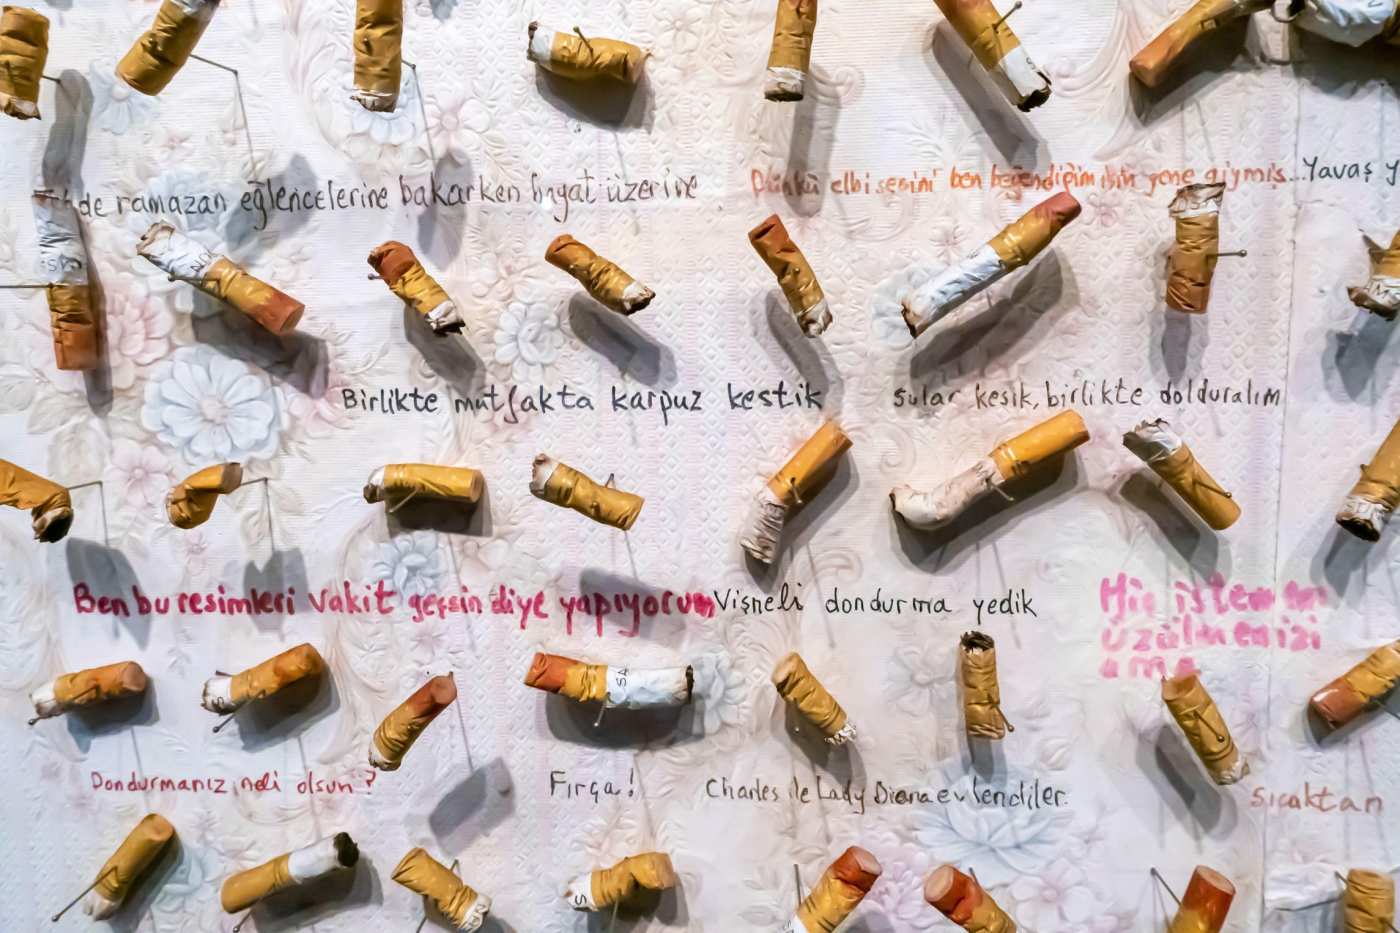 de ramazan eğlencelerine bakarken hayat üzerine
Dünkü elbisesini ben beğendiğim için yine giymiş... Yavaş y
Birlikte mutfakta karpuz kestik
Sular kesik, birlikte dolduralım
Ben bu resimleri vakit geçsin diye yapıyorum
Vişneli dondurma yedik
Hiç istemem
üzülmenizi
ama
Dondurmanız neli olsun?
Fırça!
Charles ile Lady Diana evlendiler.
sıcaktan